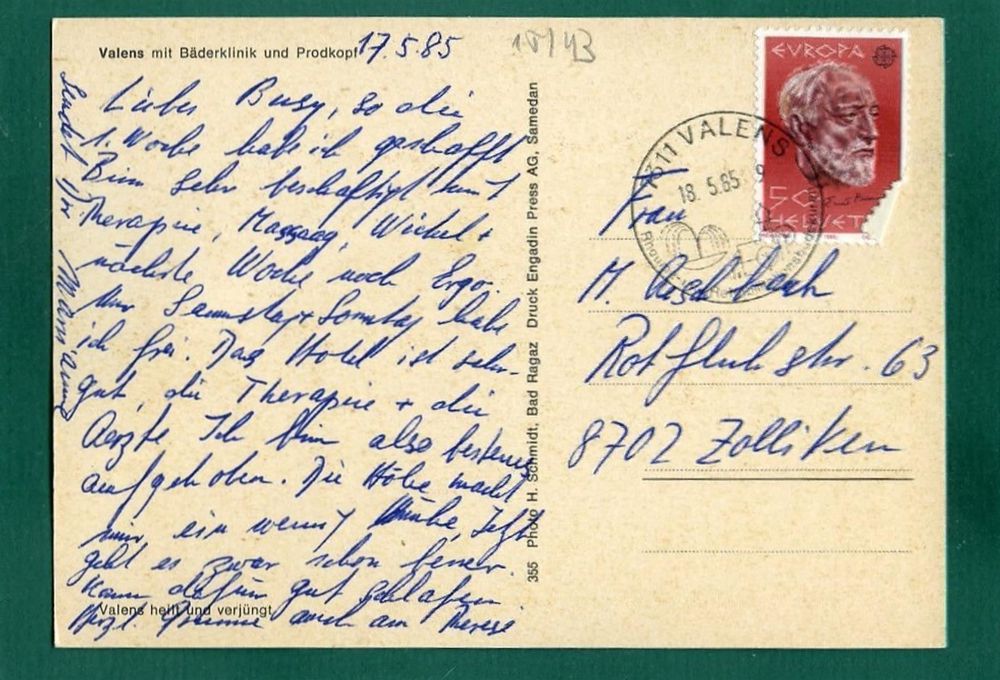 Valens mit Bäderklinik und Prodkopf
17.5.85
18/43
Liebes Busy, so die
1. Woche habe ich geschafft
Binn sehr beschäftigt mit
Therapie, Massag, Wickel +
nächste Woche noch Ergo.
Nur Samstag + Sonntag habe
ich frei. Das Hotel ist sehr
gut, die Therapie + die
Aerzte. Ich bin also bestens
aufgehoben. Die Höhe macht
mir ein wenig Mühe, Jetzt
geht es zwar schon besser.
Kann dafür gut schlafen.
Herzl. Grüsse auch an Therese
Valens heilt und verjüngt
355 Photo H. Schmidt, Bad Ragaz Druck Engadin Press AG, Samedan
EVROPA
50
HELVETI
7311 VALENS
18. 5.85
Frau
M. Aeschbach
Rotfluhstr. 63
8702 Zolliken